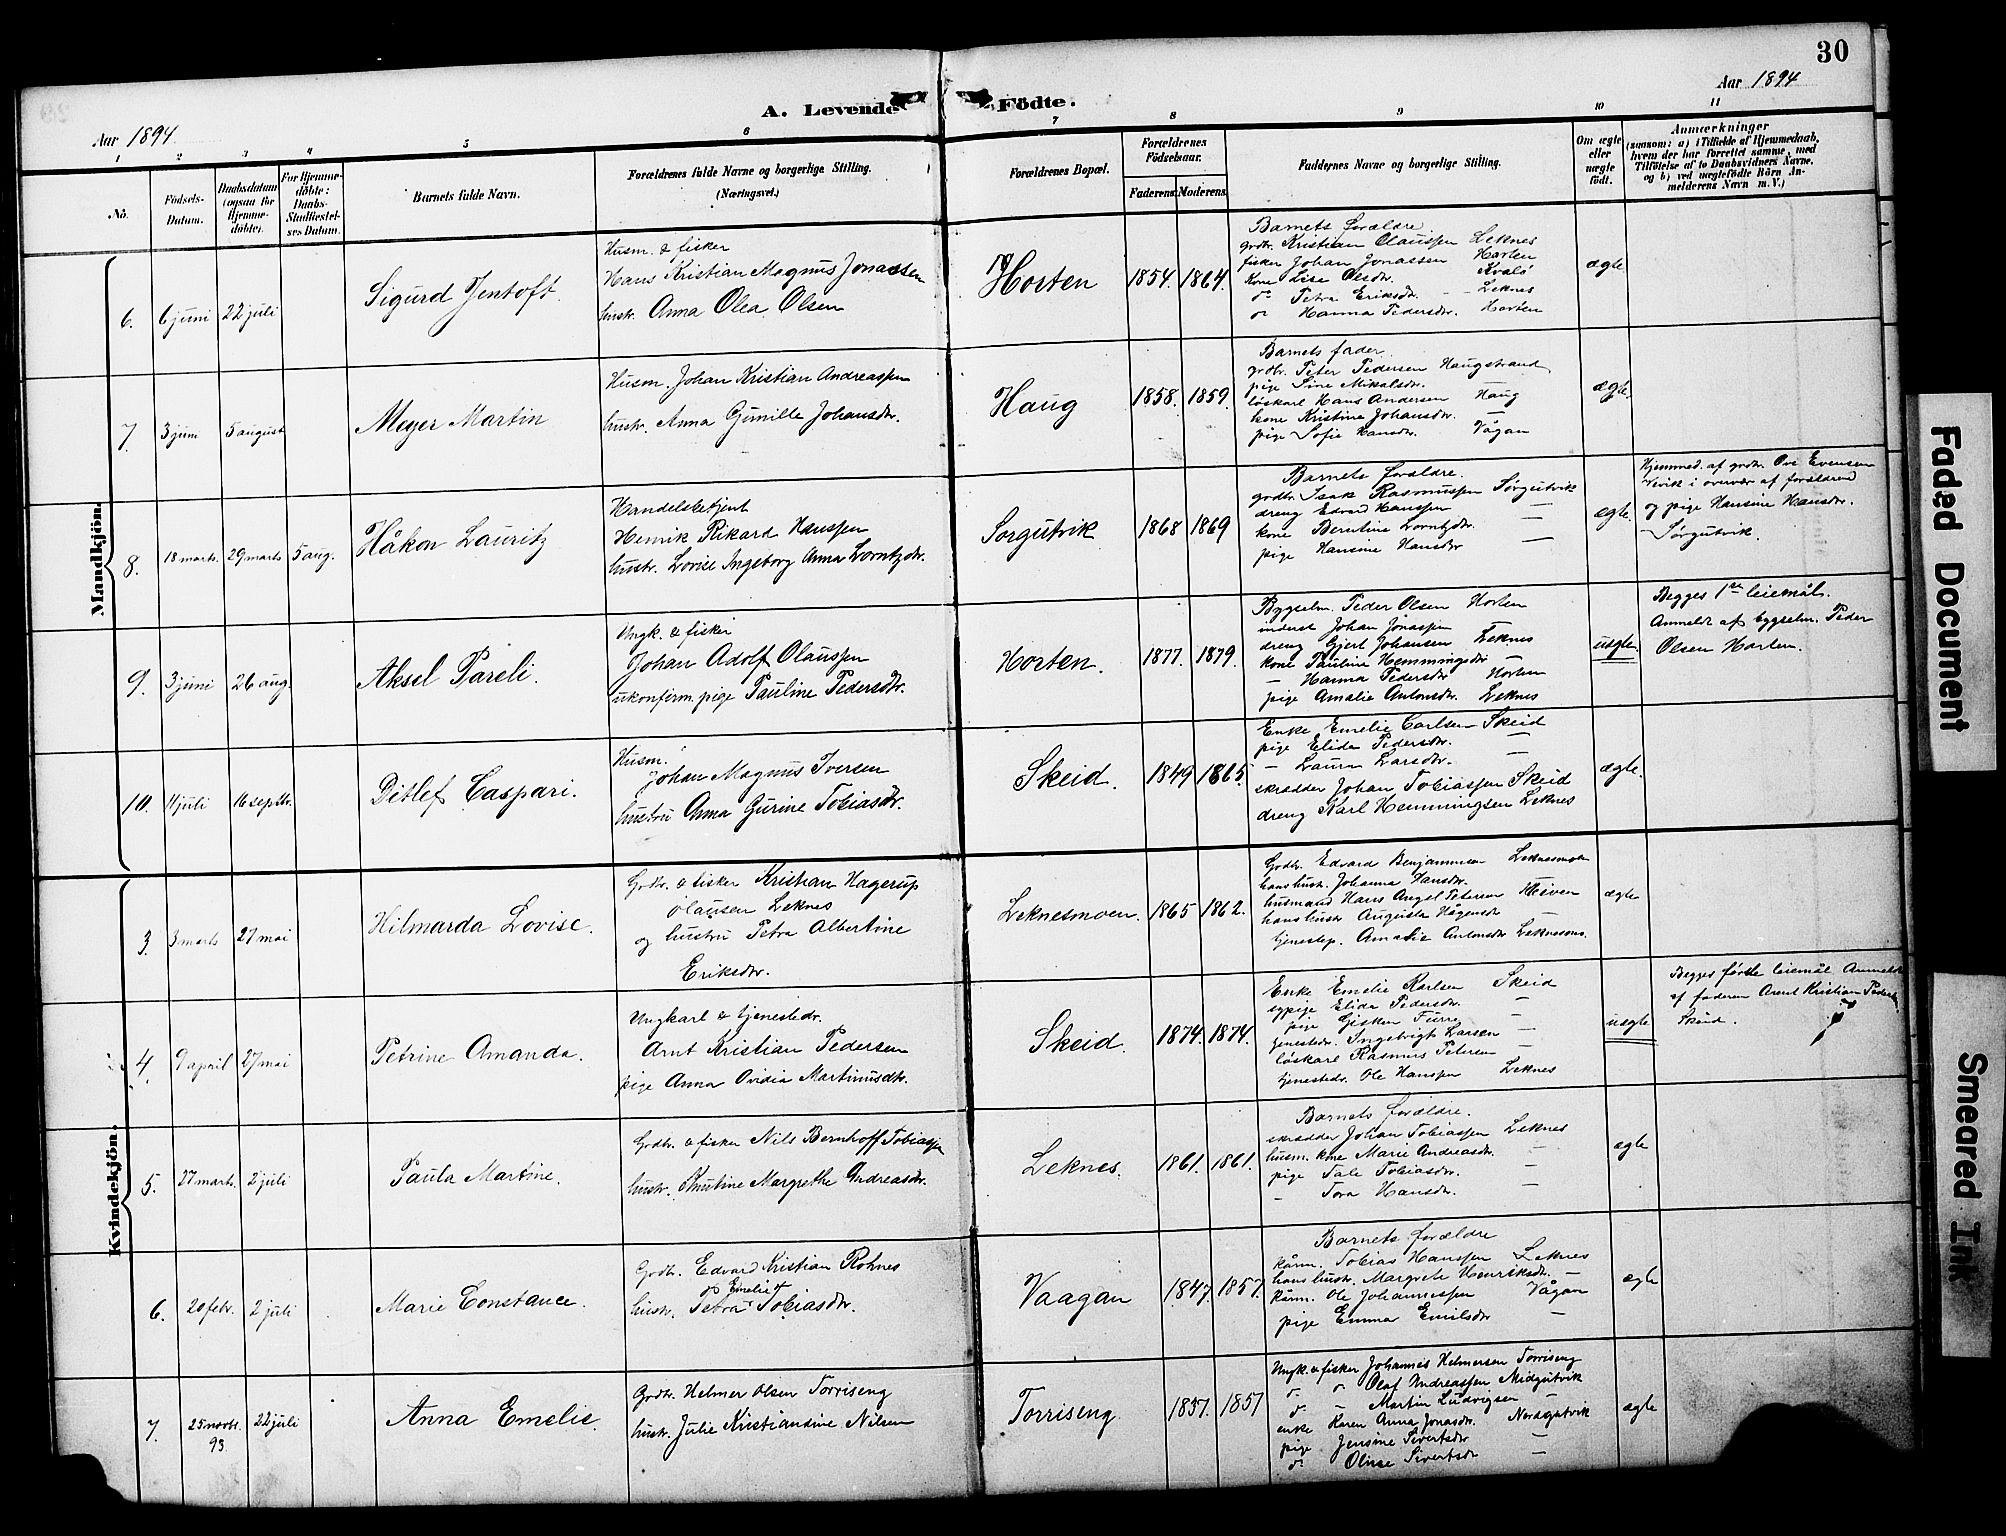 30
Aar 1894
A. Levende Födte.
Aar 1894
1 2 3 4 5 6 7 8 9 10 11
No.
Födsels-Datum.
Daabsdatum (ogsaa for Hjemme-döbte).
For Hjemme-döbte: Daabs-Stadfæstel-ses Datum.
Barnets fulde Navn.
Forældrenes fulde Navne og borgerlige Stilling.
(Næringsvei.)
Forældrenes Bopæl.
Forældrenes Födselsaar.
Faderens. Moderens.
Faddernes Navne og borgerlige Stilling.
Om ægte eller uægte födt.
Anmærkninger
(saasom: a) i Tilfælde af Hjemmedaab,
hvem der har forrettet samme, med
Tilföielse af to Daabsvidners Navne,
og b) ved uægtefödte Börn An-
melderens Navn m. V.)
Mandkjön.
6. 6 juni 22 juli
Sigurd Jentoft.
Husm. & fisker
Hans Kristian Magnus Jonassen
hustr. Anna Olea Olsen
Horten 1854. 1864.
Barnets forældre.
grdbr. Kristian Olaussen Leknes
fisker Johan Jonassen Horten
kone Lise Olsdtr. Kvalö
do Petra Eriksdtr. Leknes
do Hanna Pedersdtr. Horten
ægte
7. 3 juni 5 august
Meyer Martin
Husm. Johan Kristian Andreassen
hustr. Anna Gunille Johansdtr.
Haug 1858. 1859.
Barnets fader.
grdbr. Peter Pedersen Haugstrand
pige Sine Mikalsdtr. —
löskarl Hans Andersen Haug
kone Kristine Johansdtr. —
pige Sofie Hansdtr. Vågan
ægte.
8. 18 marts. 29 marts 5 aug.
Håkon Lauritz
Handelsbetjent
Henrik Rikard Hanssen
hustr. Lovise Ingeborg Anna Lorntzdtr.
Sørgutvik 1868 1869
Barnets forældre.
grdbr. Isak Rasmussen Sørgutvik
dreng Edvard Hanssen —
kone Berntine Lorntzdtr
pige Hansine Hansdtr —
ægte.
Hjemmed. af grdbr. Ove Evensen
i overvær af forældrene
og pige Hansine Hansdtr.
Sørgutvik.
9. 3 juni 26 aug.
Aksel Pareli.
Ungk. & fisker
Johan Adolf Olaussen
ukonfirm. pige Pauline Pedersdtr.
Horten. 1877. 1879.
Bygselm. Peder Olsen Horten
inderst Johan Jonassen —
dreng Gjert Johansen Leknes
kone Pauline Hemmingsdtr —
— Hanna Pedersdtr Horten
pige Amalie Antonsdtr. Leknes
uægte.
Begges 1ste leiemål.
Anmeldt af bygselm. Peder
Olsen Horten.
10. 11 juli 16 septbr.
Ditlef Caspari.
Husm.
Johan Magnus Iversen
hustru Anna Gurine Tobiasdtr.
Skeid. 1849 1865.
Enke Emelie Carlsen Skeid
pige Elida Pedersdtr. —
— Laura Larsdtr. —
skrædder Johan Tobiassen Skeid
dreng Karl Hemmingsen Leknes
ægte.
Kvindekjön.
3. 3 marts 27 mai
Hilmarda Lovise.
Grdbr. & fisker Kristian Hagerup
Olausen Leknes
og hustru Petra Albertine
Eriksdtr.
Leknesmoen. 1865 1862.
Grdbr. Edvard Benjaminsen Leknesmoen
hans hustr. Johanna Hansdtr.
husmand Hans Angel Petersen
hans hustr Augusta Hågensdtr —
tjenestep. Amalie Antonsdtr Leknesmo.
ægte
4. 9 april 27 mai
Petrine Amanda.
Ungkarl & tjenestedr.
Arnt Kristian Pedersen
pige Anna Ovidia Martinusdtr.
Skeid. 1874. 1874.
Enke Emelie Karlsen Skeid
sypige Elida Pedersdtr. —
pige Gisken Furre —
tjenestedr. Ingebrigt Larsen —
löskarl Rasmus Petersen —
tjenestedr. Ole Hanssen Leknes
uægte
Begges første leiemål Anmeldt
af faderen Arnt Kristian Pedersen
Skeid.
5. 27 marts. 2 juli
Paula Martine.
Grdbr. & fisker Nils Bernhoff Tobiassen
hustr. Knutine Margrethe Andreasdtr.
Leknes. 1861. 1861.
Barnets forældre.
skrædder Johan Tobiassen Leknes
husm. kone Marie Andreasdtr. —
pige Tale Tobiasdtr. —
— Tora Hansdtr. —
ægte
6. 20 febr. 2 juli
Marie Constance.
Grdbr. Edvard Kristian Rohnes
hustr. Petra Emelie Tobiasdtr.
Vaagan 1847. 1857.
Barnets forældre
kårm. Tobias Hanssen Leknes
hans hustr. Margrete Henriksdtr. —
kårm. Ole Johannessen Vågan
pige Emma Emilsdtr —
ægte
7. 25 novbr. 93. 22 juli
Anna Emelie.
Grdbr. Helmer Olsen Torriseng
hustr. Julie Kristiandine Nilsen
Torriseng. 1857. 1857
Ungk. & fisker Johannes Helmersen Torriseng
do do Olaf Andreassen Midgutvik
do — Martin Ludvigsen —
enke Karen Anna Jonasdtr. Nordgutvik
pige Jensine Sivertsdtr —
do Oline Sivertsdtr —
ægte
Faded Document
Smeared Ink